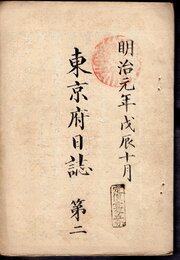 明治元年戊辰十月
東京府日誌 第二